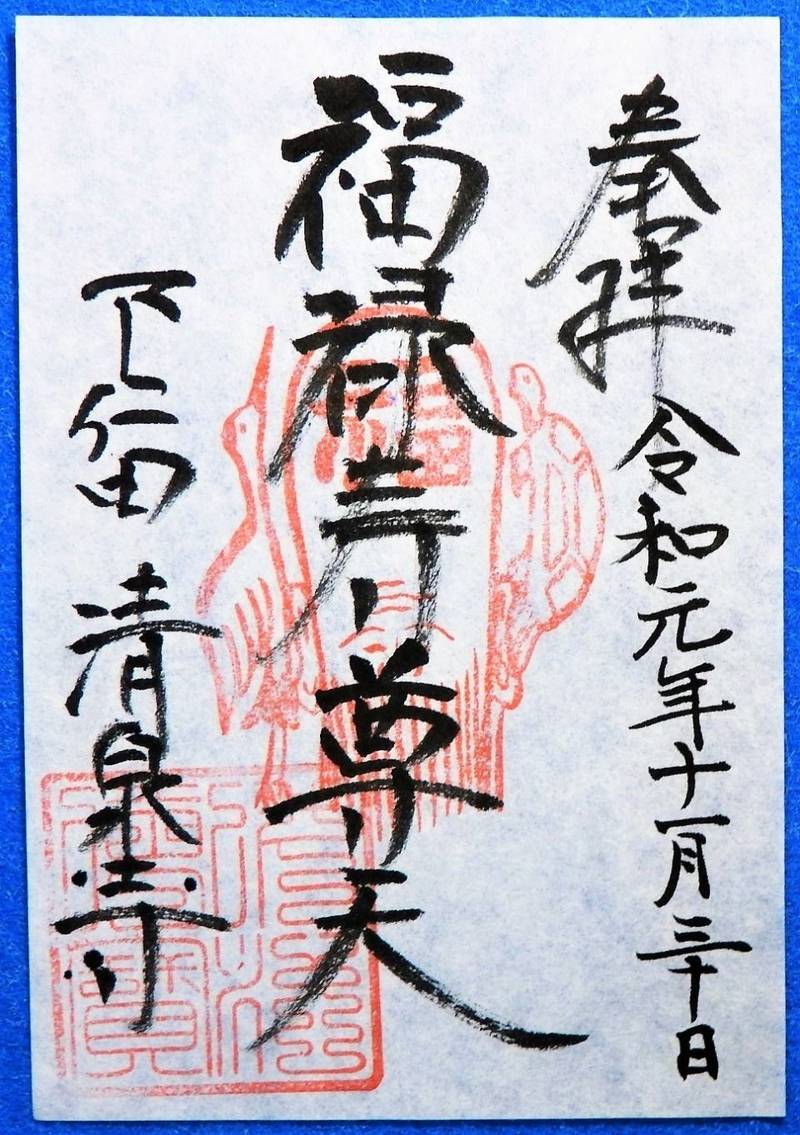 奉拝
令和元年十一月三十日
福禄寿尊天
下仁田 清泉寺